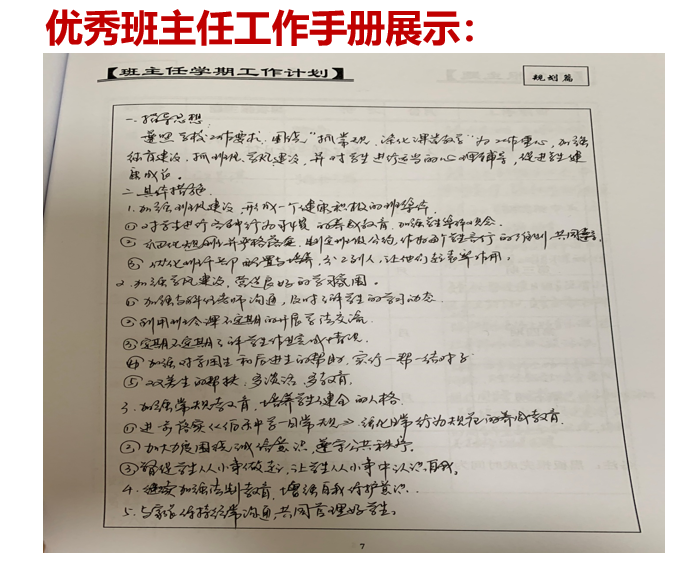 优秀班主任工作手册展示：
【班主任学期工作计划】
规划篇
一、指导思想
遵照学校工作要求，围绕“抓常规、深化课堂教学”为工作重心，加强
体育建设，抓班风、学风建设，并对学生进行适当的心理辅导，促进学生健
康成长。
二、具体措施
1. 加强班风建设，形成一个健康积极的班集体
①对学生进行各种行为习惯的养成教育，加强学生集体观念。
② 细化规则并严格落实，制定班级公约，作为每个学生言行的准则，共同遵守
③ 优化班干部的配置与培养，分工到人，让他们起表率作用。
2. 加强学风建设，营造良好的学习氛围。
① 加强与科任老师沟通，及时了解学生的学习动态
②利用班会课不定期的开展学法交流
③定期不定期了解学生作业完成情况
④加强对学困生和后进生的帮助，实行一帮一结对子
⑤双差生的帮扶，多谈话，多教育。
3. 加强常规教育，培养学生健全的人格。
①进一步落实《中学一日常规》，强化日常行为规范的养成教育.
②加大力度围绕诚信意识，遵守公共秩序。
③督促学生从小事做起，让学生从小事中认识自我。
4. 继续加强法制教育，增强自我保护意识.
5. 与家长保持经常沟通，共同管理好学生。
7